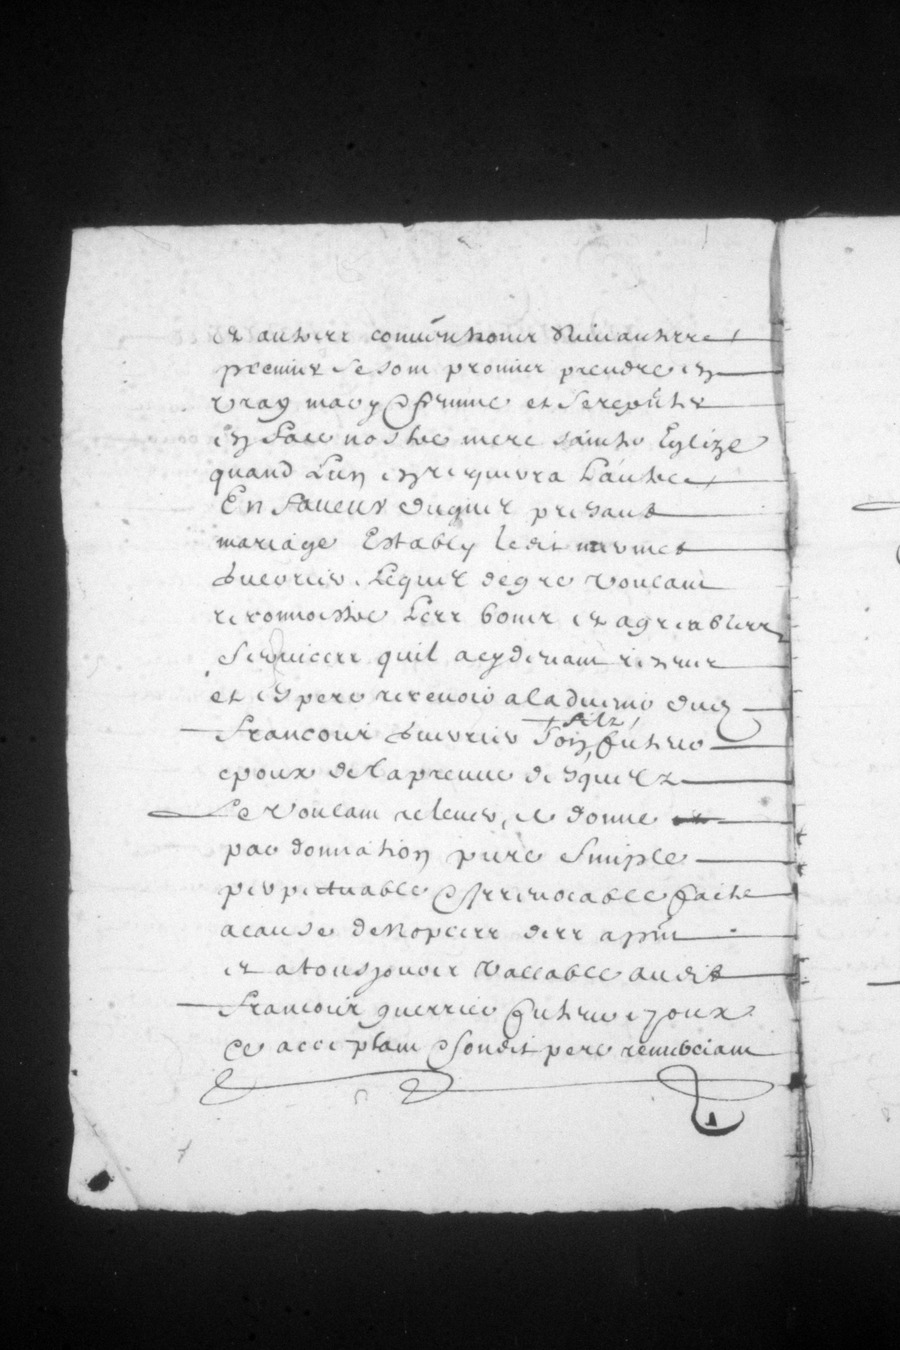 et autres convenstions suivantes
premier se sont promier prendre en
vray mary & femme et se reputer
en face nostre mere saincte Eglize
quand lun en requera l'autre
En faveur duquel presant
mariage Estably ledit
guerrier lequel de gre voulant
reconnoistre les bones et agreables
services quil a cy devant
et espere recevoir a ladvenir dud
francois guerrier son filz futur
epoux de la preuve desquelz
Le voulant relever, a donne
par donnation pure simple
perpetuable & irrevocable faite
a cause de nopces des apnt
et a tousjours vallable audit
francois guerrier futur epoux
ce acceptant & sondit pere remerciant